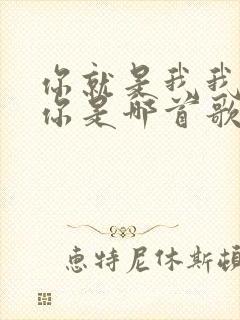 你就是我我
你是哪首歌
惠特尼休斯顿